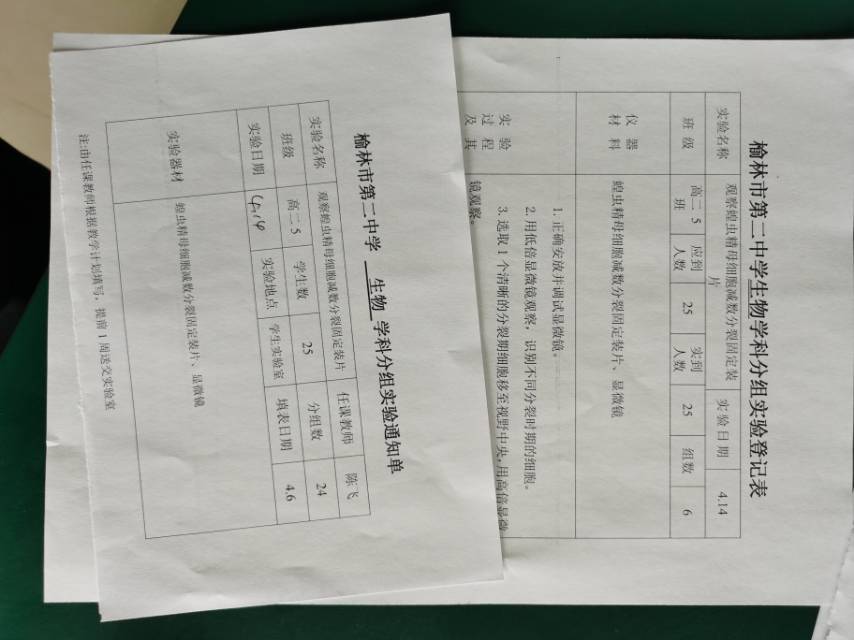 榆林市第二中学 生物 学科分组实验通知单
实验名称 观察蝗虫精母细胞减数分裂固定装片 任课教师 陈飞
班级 高二5 学生数 25 分组数 24
实验日期 4.14 实验地点 学生实验室 填表日期 4.6
实验器材 蝗虫精母细胞减数分裂固定装片、显微镜
注:由任课教师根据教学计划填写,提前1周送交实验室
榆林市第二中学生物学科分组实验登记表
实验名称 观察蝗虫精母细胞减数分裂固定装 实验日期 4.14
片
班级 高二5 应到 25 实到 25 组数 6
班 人数 人数
仪器
材料 蝗虫精母细胞减数分裂固定装片、显微镜
实验
过程
及其
1. 正确安放并调试显微镜。
2. 用低倍显微镜观察,识别不同分裂时期的细胞。
3. 选取1个清晰的分裂期细胞移至视野中央,用高倍显微
镜观察。